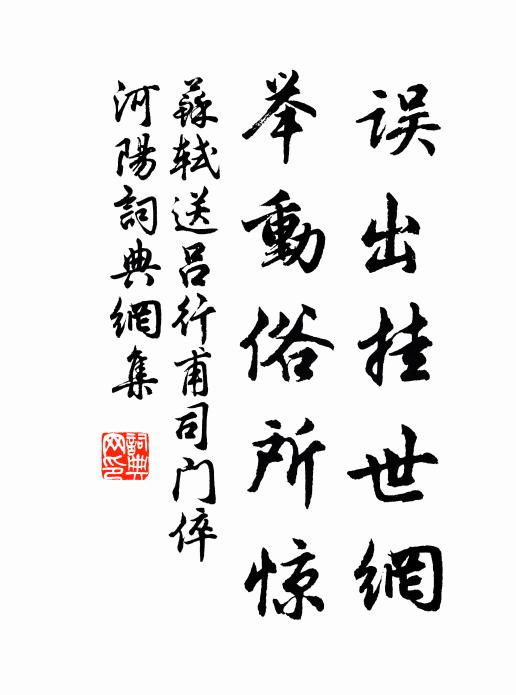 误出挂世網
举動俗所惊
蘇軾送吕行甫司门倅
河陽詞典網集
詞典网印